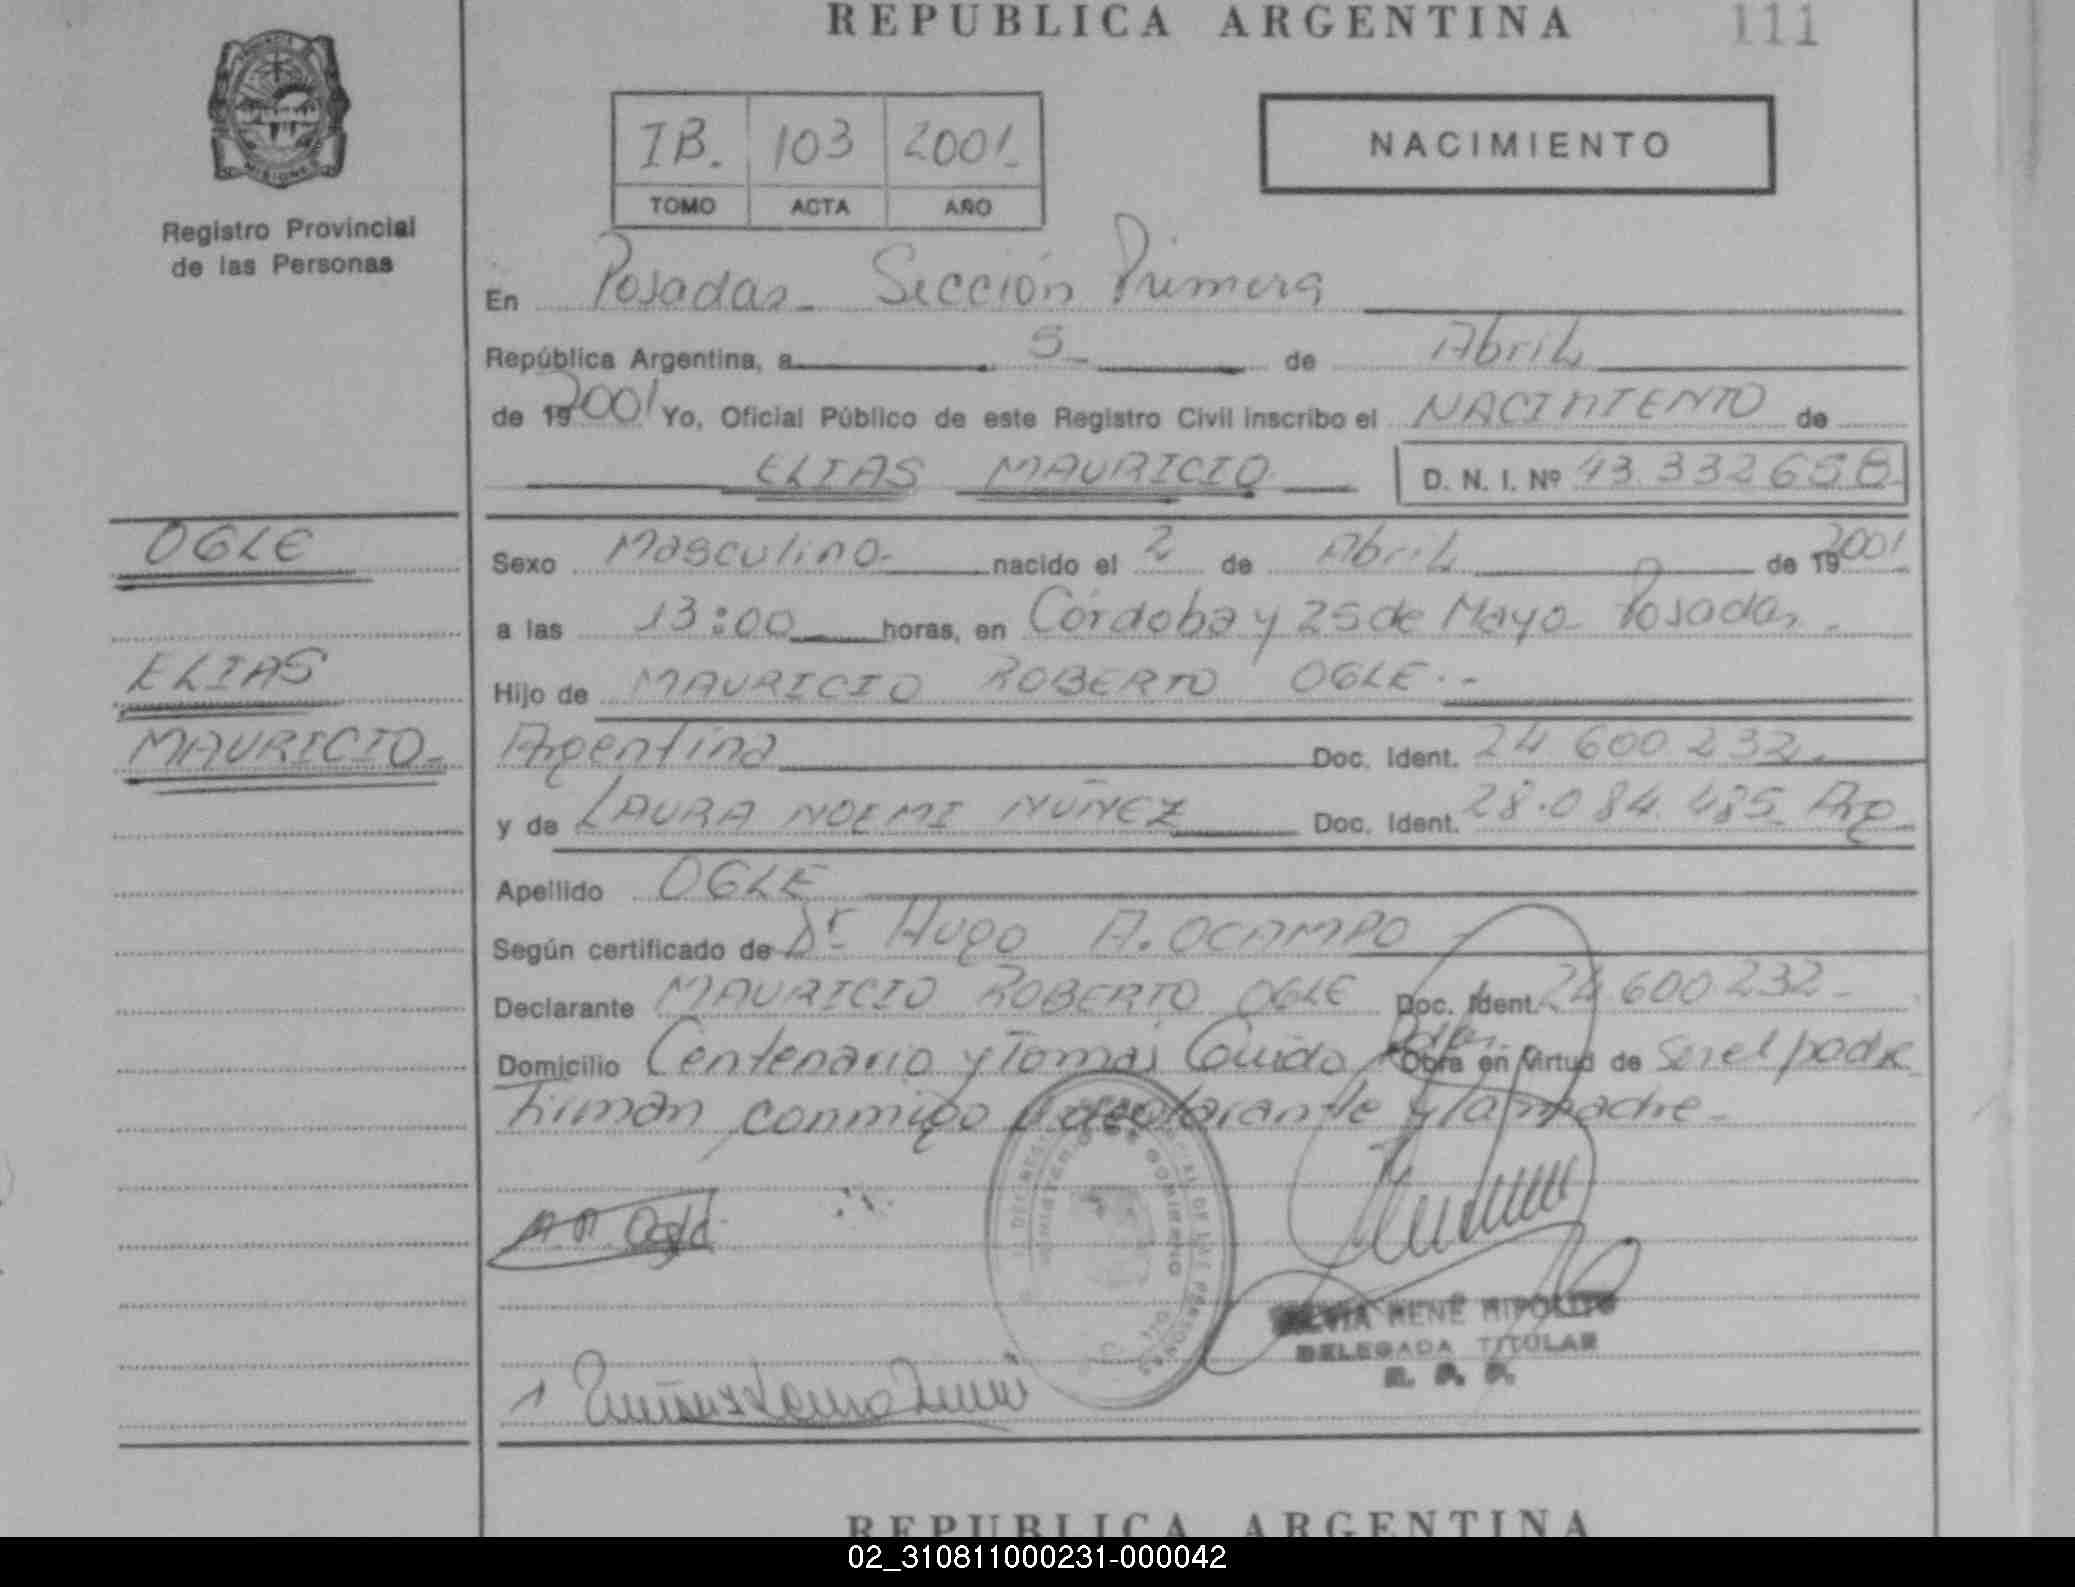 REPUBLICA ARGENTINA 111
MISIONES
Registro Provincial
de las Personas
IB. 103 2001
TOMO ACTA AÑO
NACIMIENTO
En Posadas - Sección Primera
República Argentina, a 5 de Abril
de 19 2001 Yo, Oficial Público de este Registro Civil inscribo el NACIMIENTO de
ELIAS MAURICIO D. N. I. Nº 43.332658
OGLE
ELIAS
MAURICIO
Sexo Masculino nacido el 2 de Abril de 19 2001
a las 13:00 horas, en Córdoba y 25 de Mayo - Posadas -
Hijo de MAURICIO ROBERTO OGLE. -
Argentina Doc. Ident. 24 600 232
y de LAURA NOEMI NUÑEZ Doc. Ident. 28.084.485 Arg
Apellido OGLE
Según certificado de Dr Hugo A. OCAMPO
Declarante MAURICIO ROBERTO OGLE Doc. Ident. 24 600 232 -
Domicilio Centenario y Tomás Guido Obra en Virtud de Ser el padre
Firman conmigo declarante y la madre -
SILVIA RENÉ HIPOLITO
DELEGADA TITULAR
REPUBLICA ARGENTINA
02_310811000231-000042